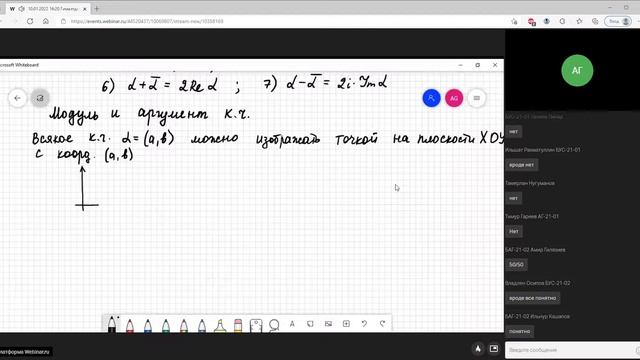 https://events.webinar.ru/44520437/10069807/stream-new/10358169
Microsoft Whiteboard
6) α + ᾱ = 2Re α ; 7) α - ᾱ = 2i · Im α
Модуль и аргумент к.ч.
Всякое к.ч. α = (а, в) можно изображать точкой на плоскости XOY
с коорд. (а, в)
АГ
AG
нет
Ильшат Рахматуллин БУС-21-01
вроде нет
Тамерлан Нугуманов
нет
Тимур Гареев АГ-21-01
Нет
БАГ-21-02 Амир Гилязиев
50/50
Владлен Осипов БУС-21-02
вроде все понятно
БАГ-21-02 Ильнур Кашапов
понятно
Введите сообщение
платформа Webinar.ru